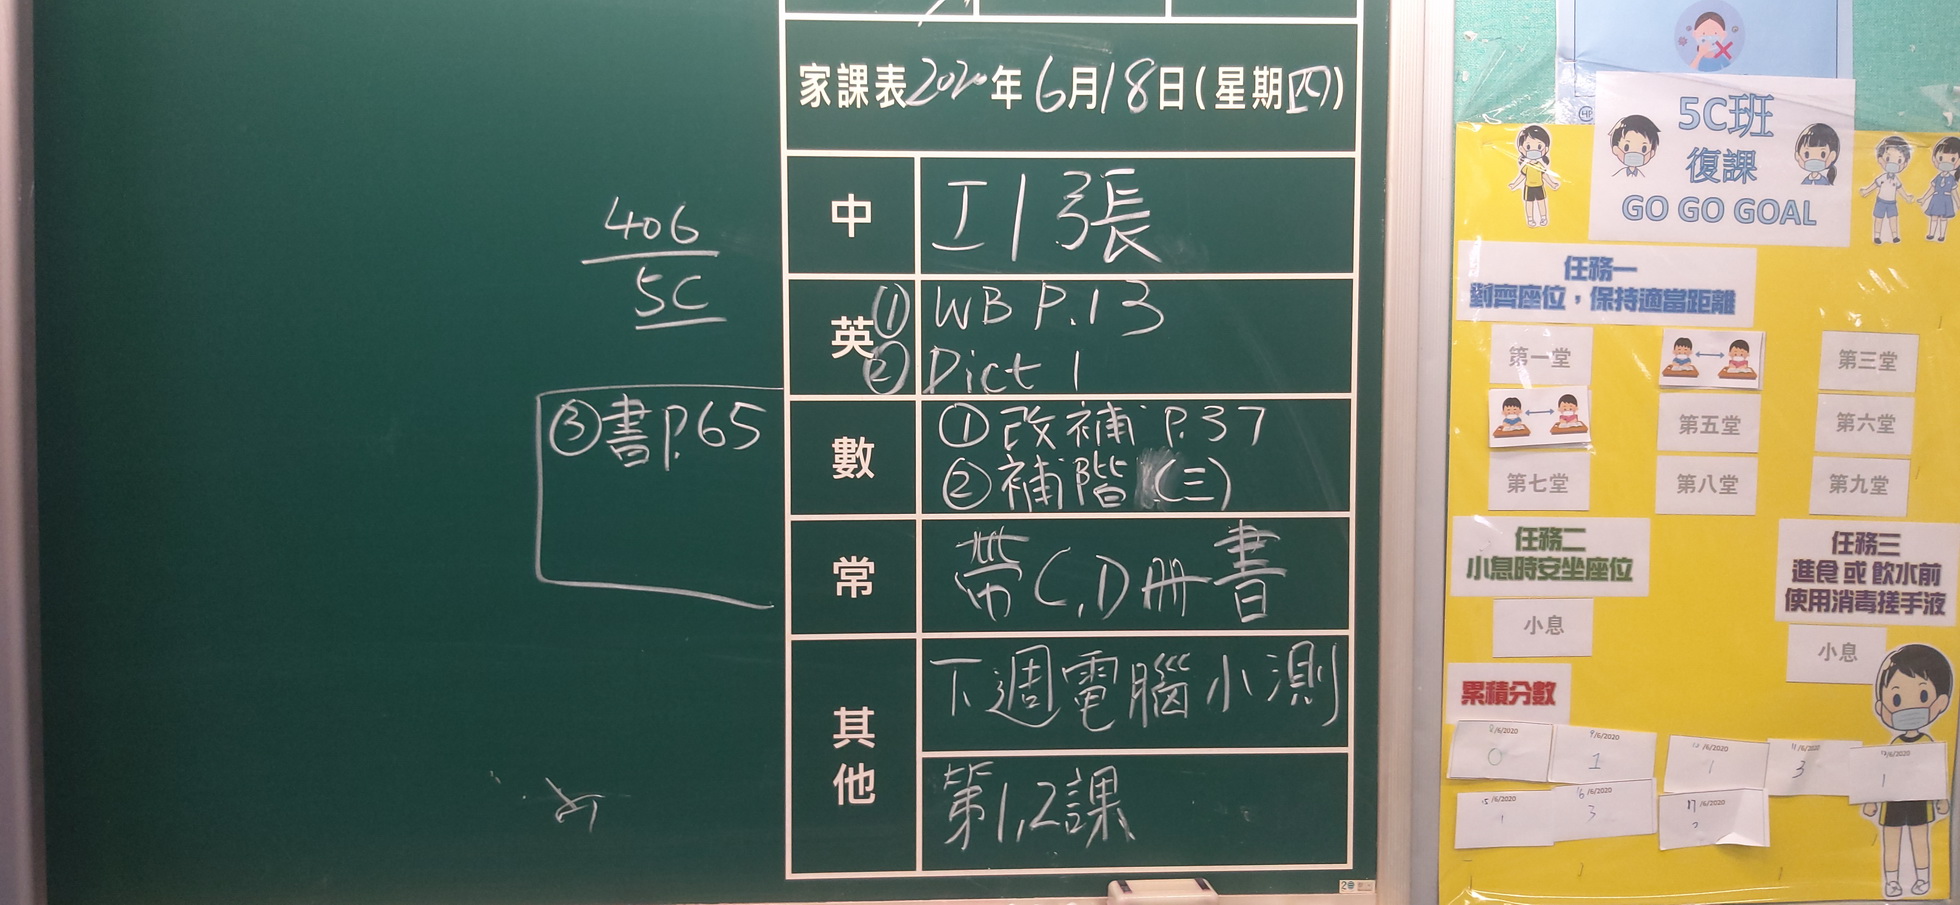 家課表2020年6月18日(星期四)
中
工1張
英
① WB P.13
② Dict 1
數
① 改補 P.37
② 補階 (三)
③書P.65
常
帶C,D冊書
其他
下週電腦小測
第1,2課
406
5C
5C班
復課
GO GO GOAL
任務一
對齊座位，保持適當距離
第一堂
第三堂
第五堂
第六堂
第七堂
第八堂
第九堂
任務二
小息時安坐座位
小息
任務三
進食 或 飲水前
使用消毒搓手液
小息
累積分數
8/6/2020
0
9/6/2020
1
/6/2020
1
11/6/2020
3
/6/2020
1
15/6/2020
1
16/6/2020
3
17/6/2020